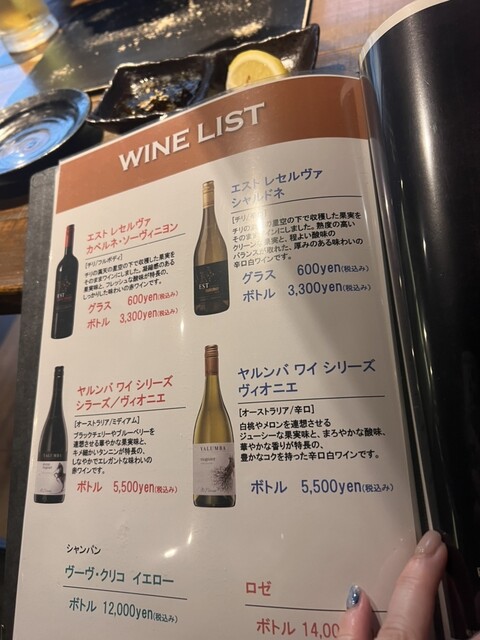 WINE LIST
エスト レセルヴァ
カベルネ・ソーヴィニヨン
[チリ/フルボディ]
チリの満天の星空の下で収穫した果実を
そのままワインにしました。凝縮感のある
果実味と、フレッシュな酸味が特長の、
しっかりした味わいの赤ワインです。
グラス 600yen(税込み)
ボトル 3,300yen(税込み)
エスト レセルヴァ
シャルドネ
[チリ/
チリの 星空の下で収穫した果実を
そのまま ワインにしました。熟度の高い
クリーン 果実と、程よい酸味の
バランスが取れた、厚みのある味わいの
辛口白ワインです。
グラス 600yen(税込み)
ボトル 3,300yen(税込み)
EST
ヤルンバ ワイ シリーズ
シラーズ/ヴィオニエ
[オーストラリア/ミディアム]
ブラックチェリーやブルーベリーを
連想させる華やかな果実味と、
キメ細かいタンニンが特長の、
しなやかでエレガントな味わいの
赤ワインです。
ボトル 5,500yen(税込み)
YALUMBA
ヤルンバ ワイ シリーズ
ヴィオニエ
[オーストラリア/辛口]
白桃やメロンを連想させる
ジューシーな果実味と、まろやかな酸味、
華やかな香りが特長の、
豊かなコクを持った辛口白ワインです。
ボトル 5,500yen(税込み)
YALUMBA
シャンパン
ヴーヴ・クリコ イエロー
ボトル 12,000yen(税込み)
ロゼ
ボトル 14,00